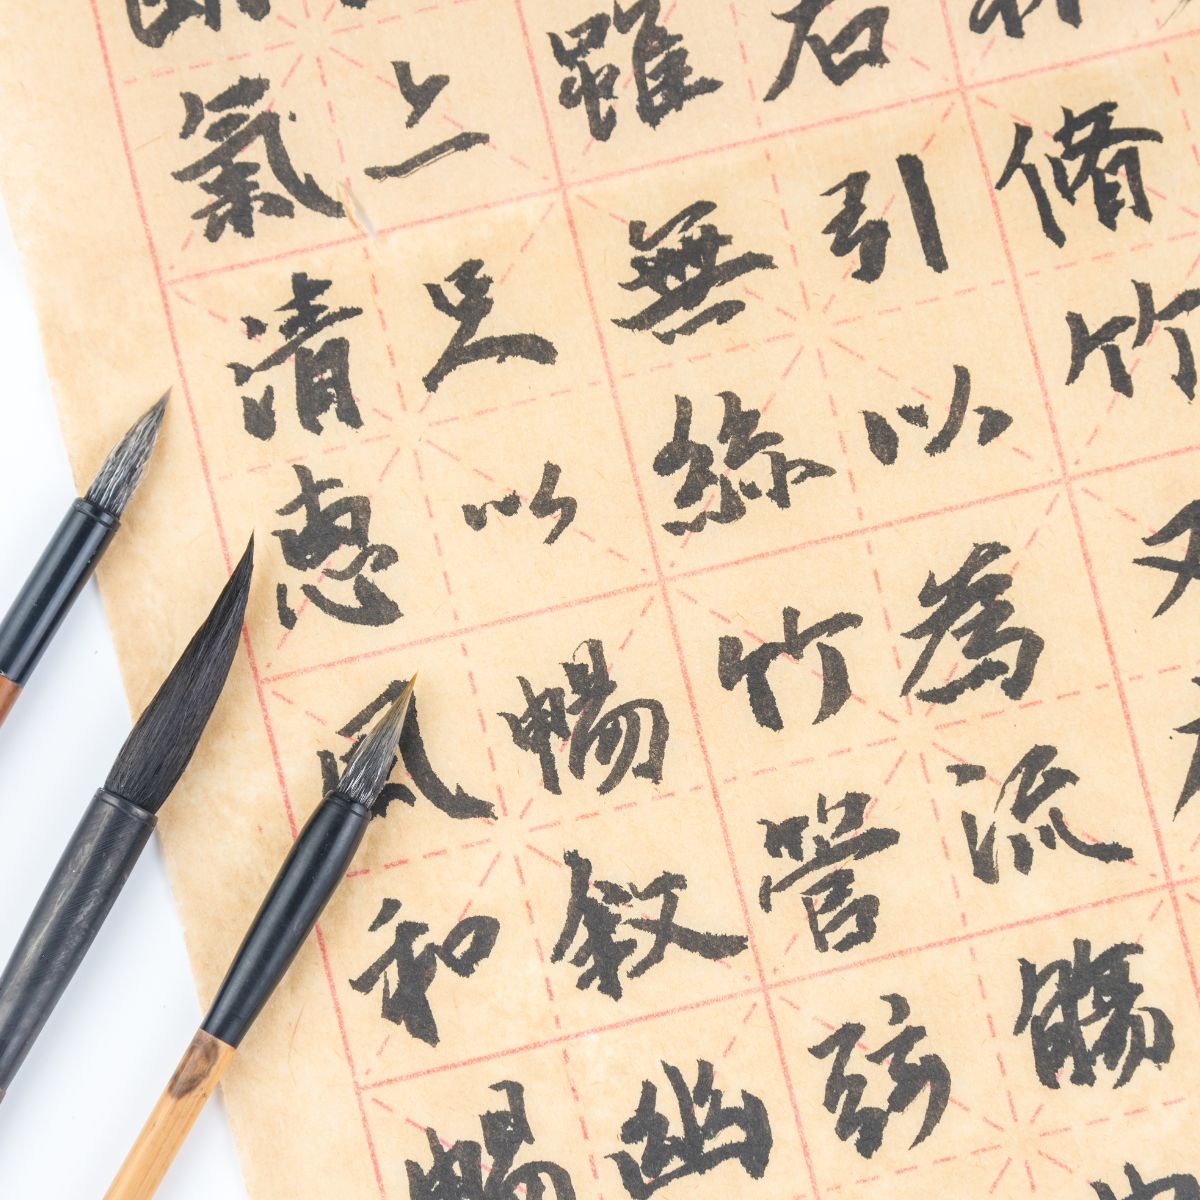 脩竹又
右引以為流觴
雖無絲竹管弦
足以暢敘幽
氣清惠風和暢